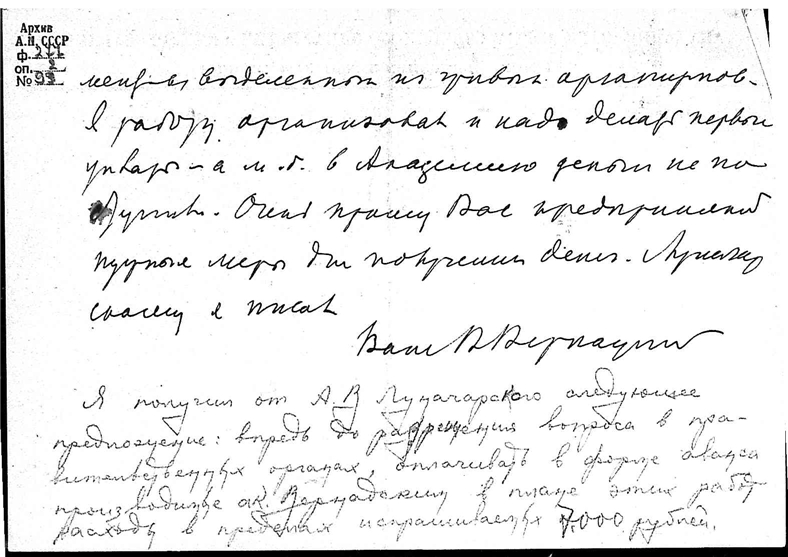 Архив
А.Н. СССР
ф. 277
оп.
№
выделенных из живых организмов.
Я работу организовал и надо делать первые
а м.б. в Академию деньги не по
Очень прошу Вас предпринять
нужные меры для получения денег. Луначар
скому я писал
Ваш В Вернадский
Я получил от А.В Луначарского следующее
предложение: впредь до разрешения вопроса в пра-
вительственных органах, оплачивать в форме аванса
производимые ак. Вернадским в плане этих работ
расходы в пределах испрашиваемых 7.000 рублей.